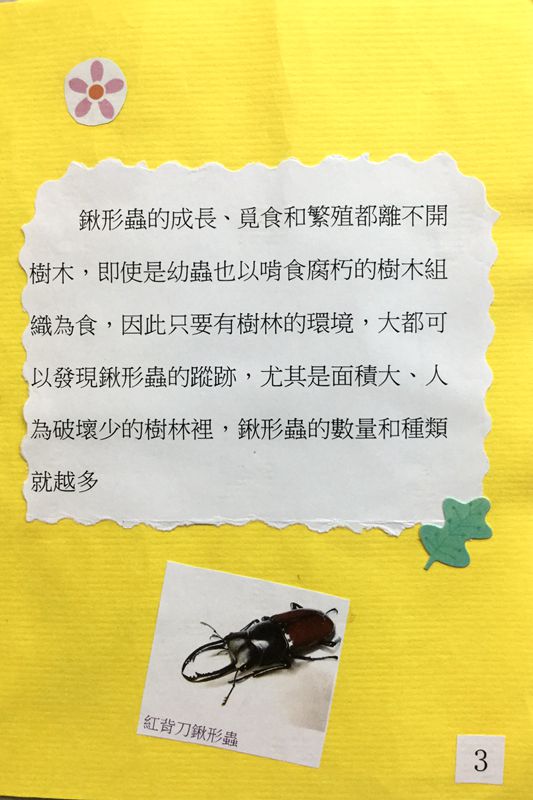 鍬形蟲的成長、覓食和繁殖都離不開
樹木，即使是幼蟲也以啃食腐朽的樹木組
織為食，因此只要有樹林的環境，大都可
以發現鍬形蟲的蹤跡，尤其是面積大、人
為破壞少的樹林裡，鍬形蟲的數量和種類
就越多
紅背刀鍬形蟲
3